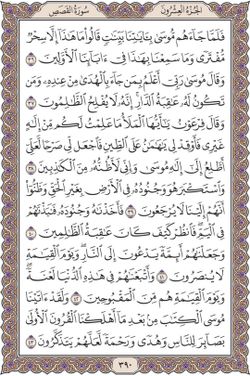 الجزء العشرون سورة القصص
فلما جاءهم موسى بآياتنا بينات قالوا ما هذا إلا سحر
مفترى وما سمعنا بهذا في ءابائنا الأولين ٣٦
وقال موسى ربي أعلم بمن جاء بالهدى من عنده ومن
تكون له عاقبة الدار إنه لا يفلح الظالمون ٣٧
وقال فرعون يأيها الملأ ما علمت لكم من إله
غيري فأوقد لي يهامان على الطين فاجعل لي صرحا لعلي
أطلع إلى إله موسى وإني لأظنه من الكاذبين ٣٨
واستكبر هو وجنوده في الأرض بغير الحق وظنوا
أنهم إلينا لا يرجعون ٣٩ فأخذناه وجنوده فنبذناهم
في اليم فانظر كيف كان عاقبة الظالمين ٤٠
وجعلناهم أئمة يدعون إلى النار ويوم القيامة
لا ينصرون ٤١ وأتبعناهم في هذه الدنيا لعنة
ويوم القيامة هم من المقبوحين ٤٢ ولقد ءاتينا
موسى الكتاب من بعد ما أهلكنا القرون الأولى
بصائر للناس وهدى ورحمة لعلهم يتذكرون ٤٣
٣٩٠